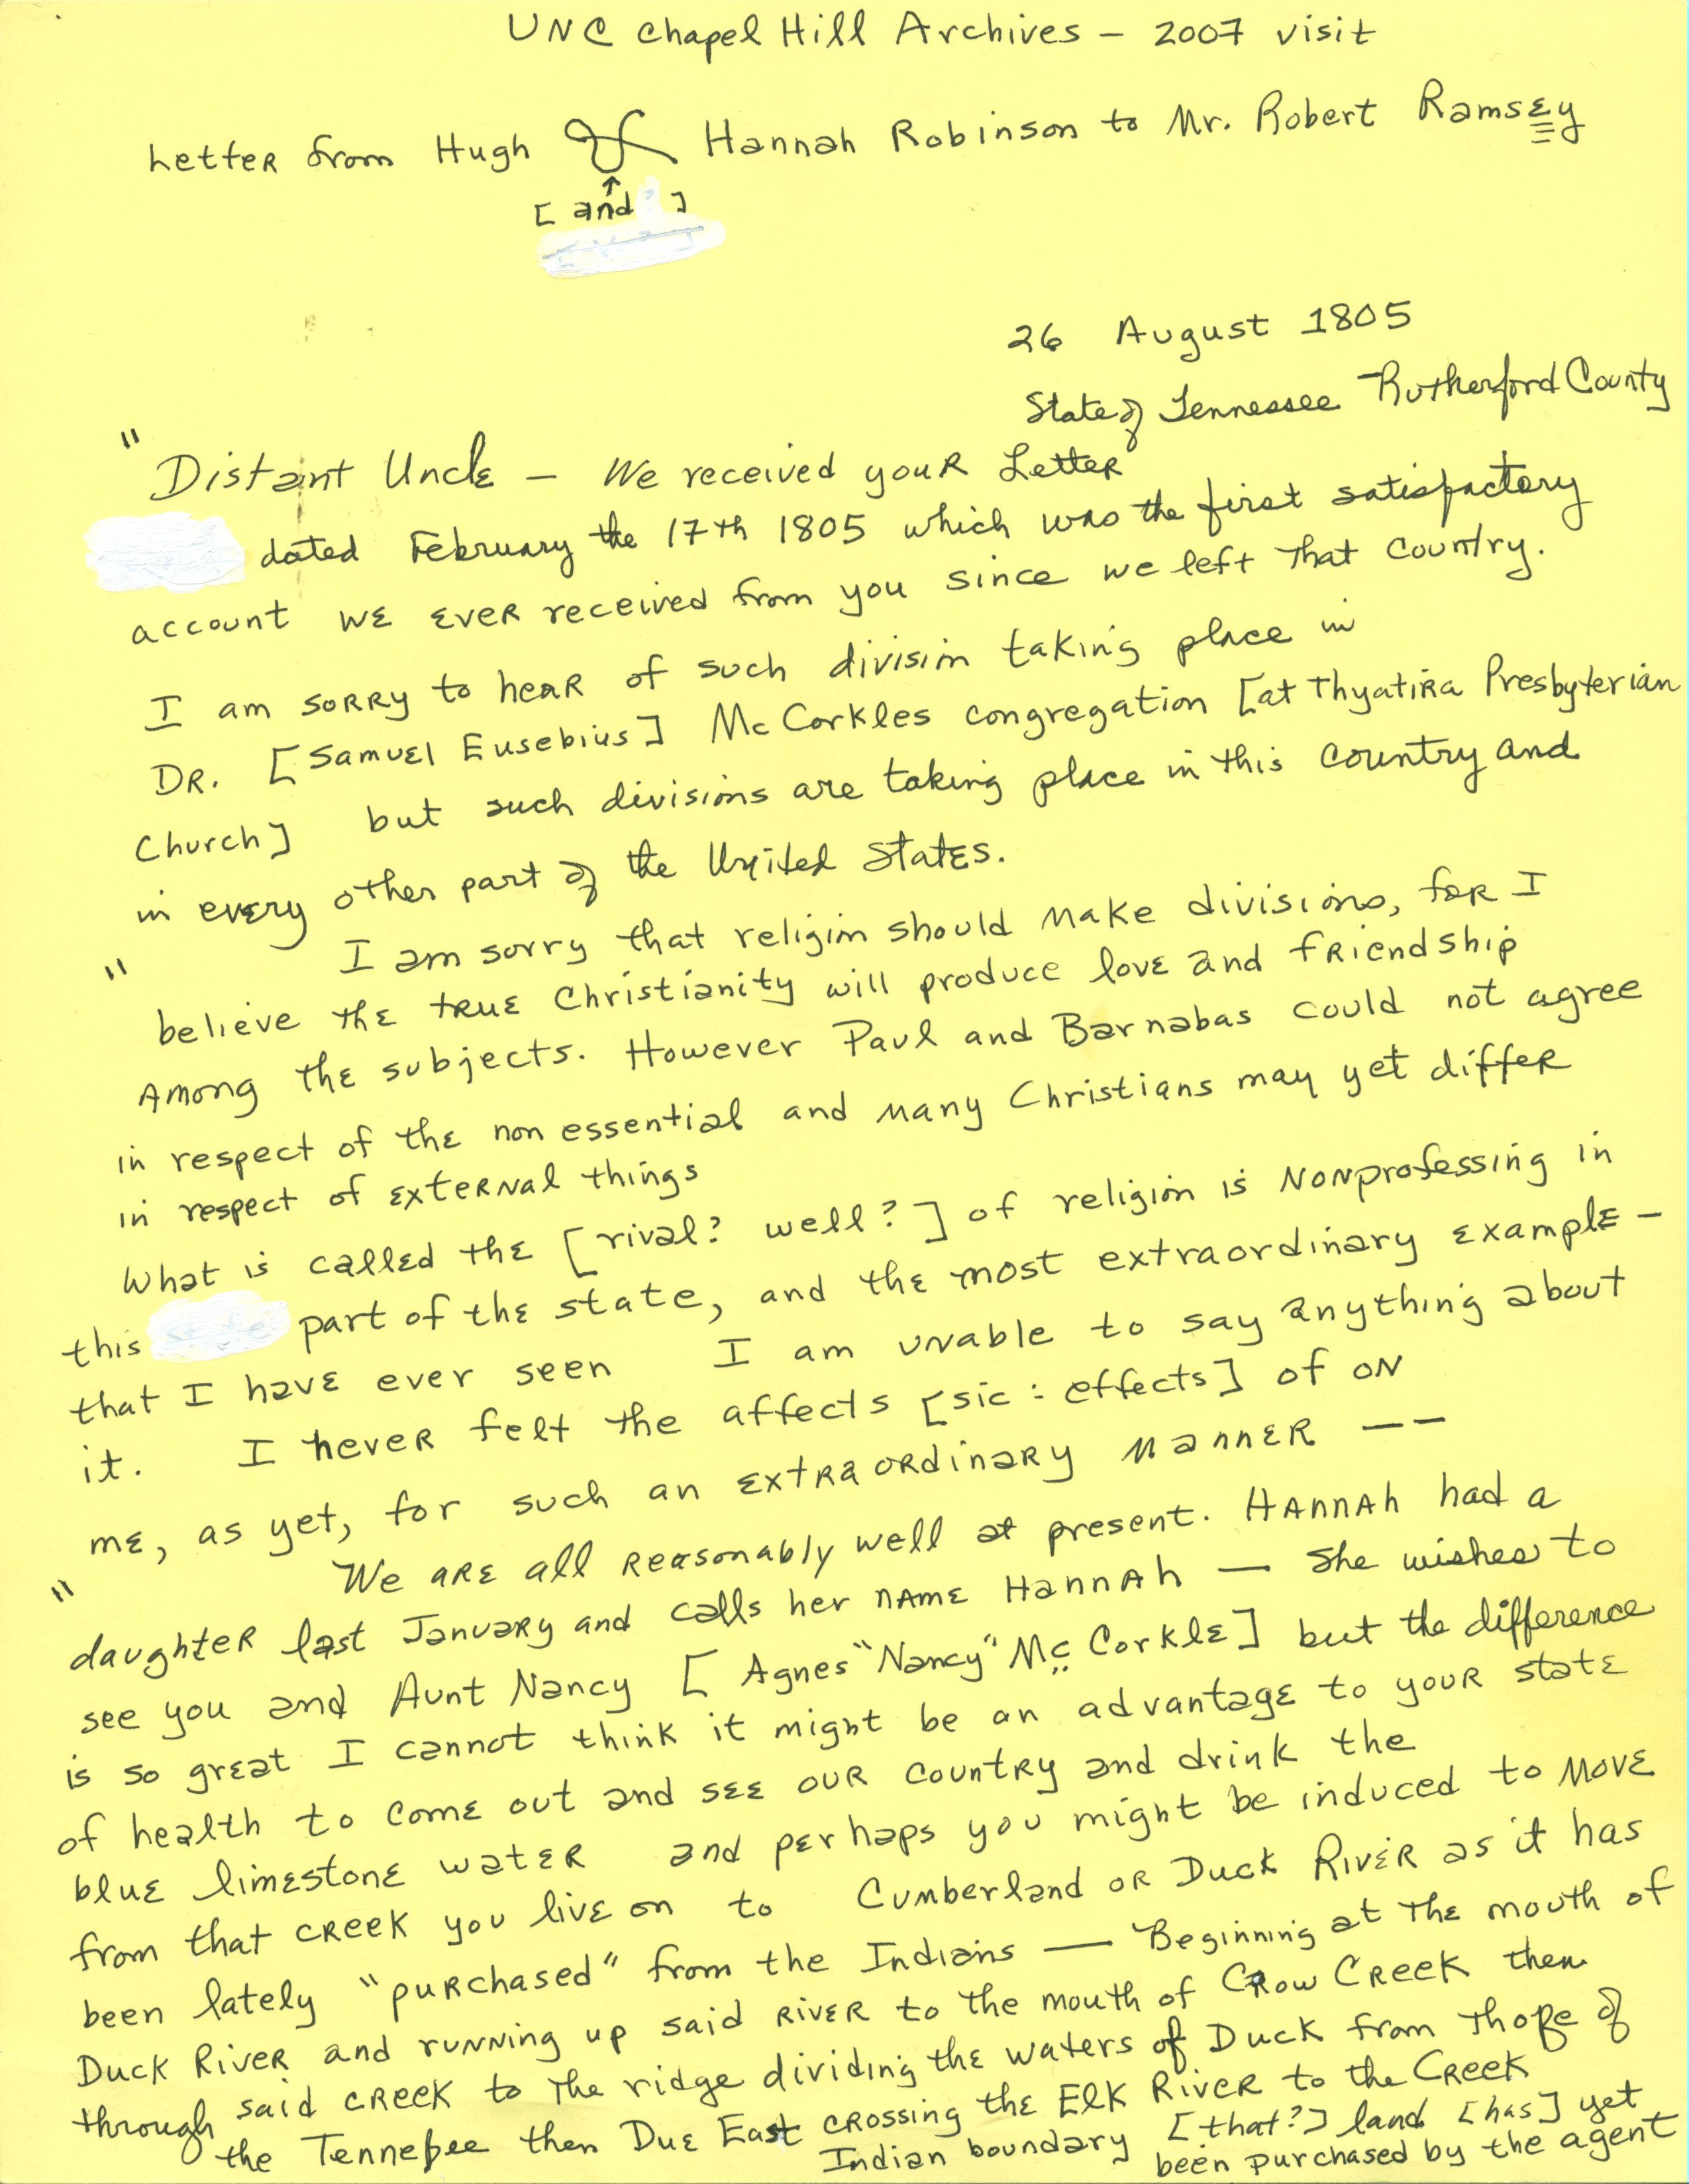 UNC Chapel Hill Archives - 2007 visit
Letter from Hugh & Hannah Robinson to Mr. Robert Ramsey
↑
[and?]
26 August 1805
State of Tennessee Rutherford County
" Distant Uncle - We received your Letter
dated February the 17th 1805 which was the first satisfactory
account we ever received from you since we left that country.
I am sorry to hear of such division taking place in
Dr. [Samuel Eusebius] McCorkles congregation [at Thyatira Presbyterian
Church] but such divisions are taking place in this country and
in every other part of the United States.
" I am sorry that religion should make divisions, for I
believe the true Christianity will produce love and friendship
Among the subjects. However Paul and Barnabas could not agree
in respect of the non essential and many Christians may yet differ
in respect of external things
What is called the [rival? well?] of religion is Nonprofessing in
this part of the state, and the most extraordinary example -
that I have ever seen I am unable to say anything about
it. I never felt the affects [sic: effects] of on
me, as yet, for such an extraordinary manner --
" We are all reasonably well at present. Hannah had a
daughter last January and calls her name Hannah — She wishes to
see you and Aunt Nancy [Agnes "Nancy" McCorkle] but the difference
is so great I cannot think it might be an advantage to your state
of health to come out and see our country and drink the
blue limestone water and perhaps you might be induced to move
from that creek you live on to Cumberland or Duck River as it has
been lately "purchased" from the Indians — Beginning at the mouth of
Duck River and running up said river to the mouth of Crow Creek then
through said creek to the ridge dividing the waters of Duck from Those of
the Tennessee then Due East crossing the Elk River to the Creek
Indian boundary [that?] land [has] yet
been purchased by the agent